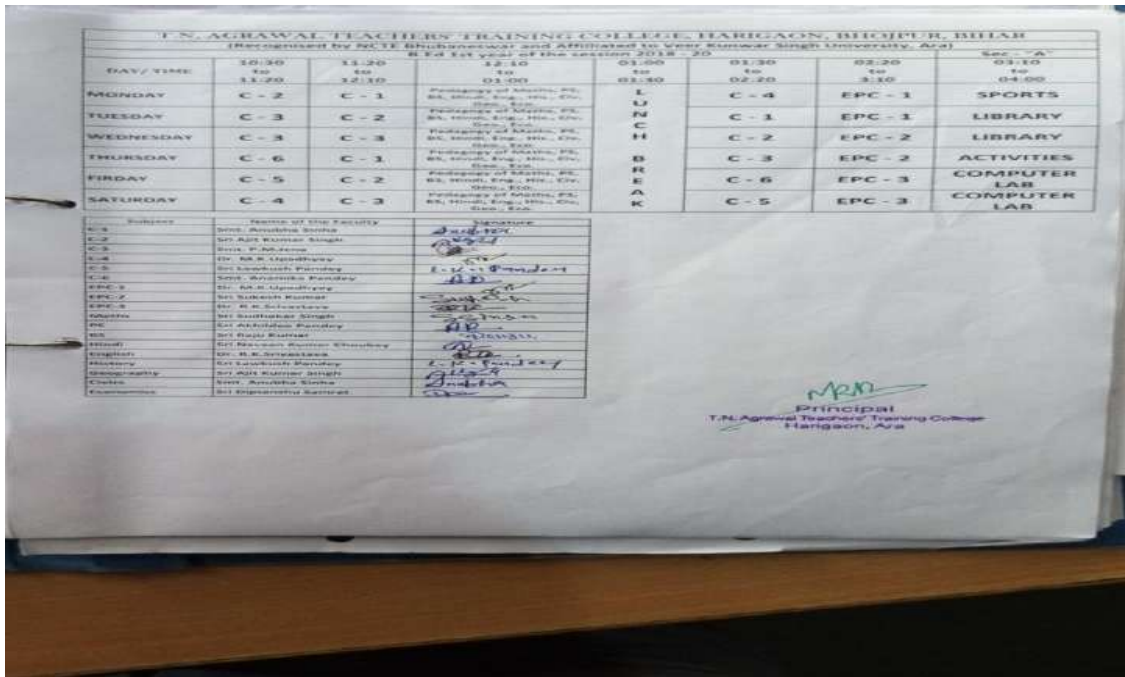 T.N. AGRAWAL TEACHERS' TRAINING COLLEGE, HARIGAON, BHOJPUR, BIHAR
(Recognised by NCTE Bhubaneswar and Affiliated to Veer Kunwar Singh University, Ara)
B.Ed 1st year of the session 2018 - 20 Sec - "A"
DAY/ TIME 10:30 to 11:20 11:20 to 12:10 12:10 to 01:00 01:00 to 01:30 01:30 to 02:20 02:20 to 3:10 03:10 to 04:00
MONDAY C - 2 C - 1 Pedagogy of Maths, PS, BS, Hindi, Eng., His., Civ. Geo., Eco. LUNCH BREAK C - 4 EPC - 1 SPORTS
TUESDAY C - 3 C - 2 Pedagogy of Maths, PS, BS, Hindi, Eng., His., Civ. Geo., Eco. C - 1 EPC - 1 LIBRARY
WEDNESDAY C - 3 C - 3 Pedagogy of Maths, PS, BS, Hindi, Eng., His., Civ. Geo., Eco. C - 2 EPC - 2 LIBRARY
THURSDAY C - 6 C - 1 Pedagogy of Maths, PS, BS, Hindi, Eng., His., Civ. Geo., Eco. C - 3 EPC - 2 ACTIVITIES
FIRDAY C - 5 C - 2 Pedagogy of Maths, PS, BS, Hindi, Eng., His., Civ. Geo., Eco. C - 6 EPC - 3 COMPUTER LAB
SATURDAY C - 4 C - 3 Pedagogy of Maths, PS, BS, Hindi, Eng., His., Civ. Geo., Eco. C - 5 EPC - 3 COMPUTER LAB
Subject Name of the Faculty Signature
C-1 Smt. Anubha Sinha Anubha
C-2 Sri Ajit Kumar Singh
C-3 Smt. P.M.Jena
C-4 Dr. M.K.Upadhyay
C-5 Sri Lawkush Pandey L.K. Pandey
C-6 Smt. Anamika Pandey
EPC-1 Dr. M.K.Upadhyay
EPC-2 Sri Sukesh Kumar
EPC-3 Dr. R.K.Srivastava
Maths Sri Sudhakar Singh
Sri Akhildeo Pandey
BS Sri Raju Kumar
Hindi Sri Naveen Kumar Choubey
English Dr. R.K.Srivastava
History Sri Lawkush Pandey L.K. Pandey
Geography Sri Ajit Kumar Singh
Civics Smt. Anubha Sinha Anubha
Economics Sri Dipanshu Samrat
Principal
T.N. Agrawal Teachers' Training College
Harigaon, Ara